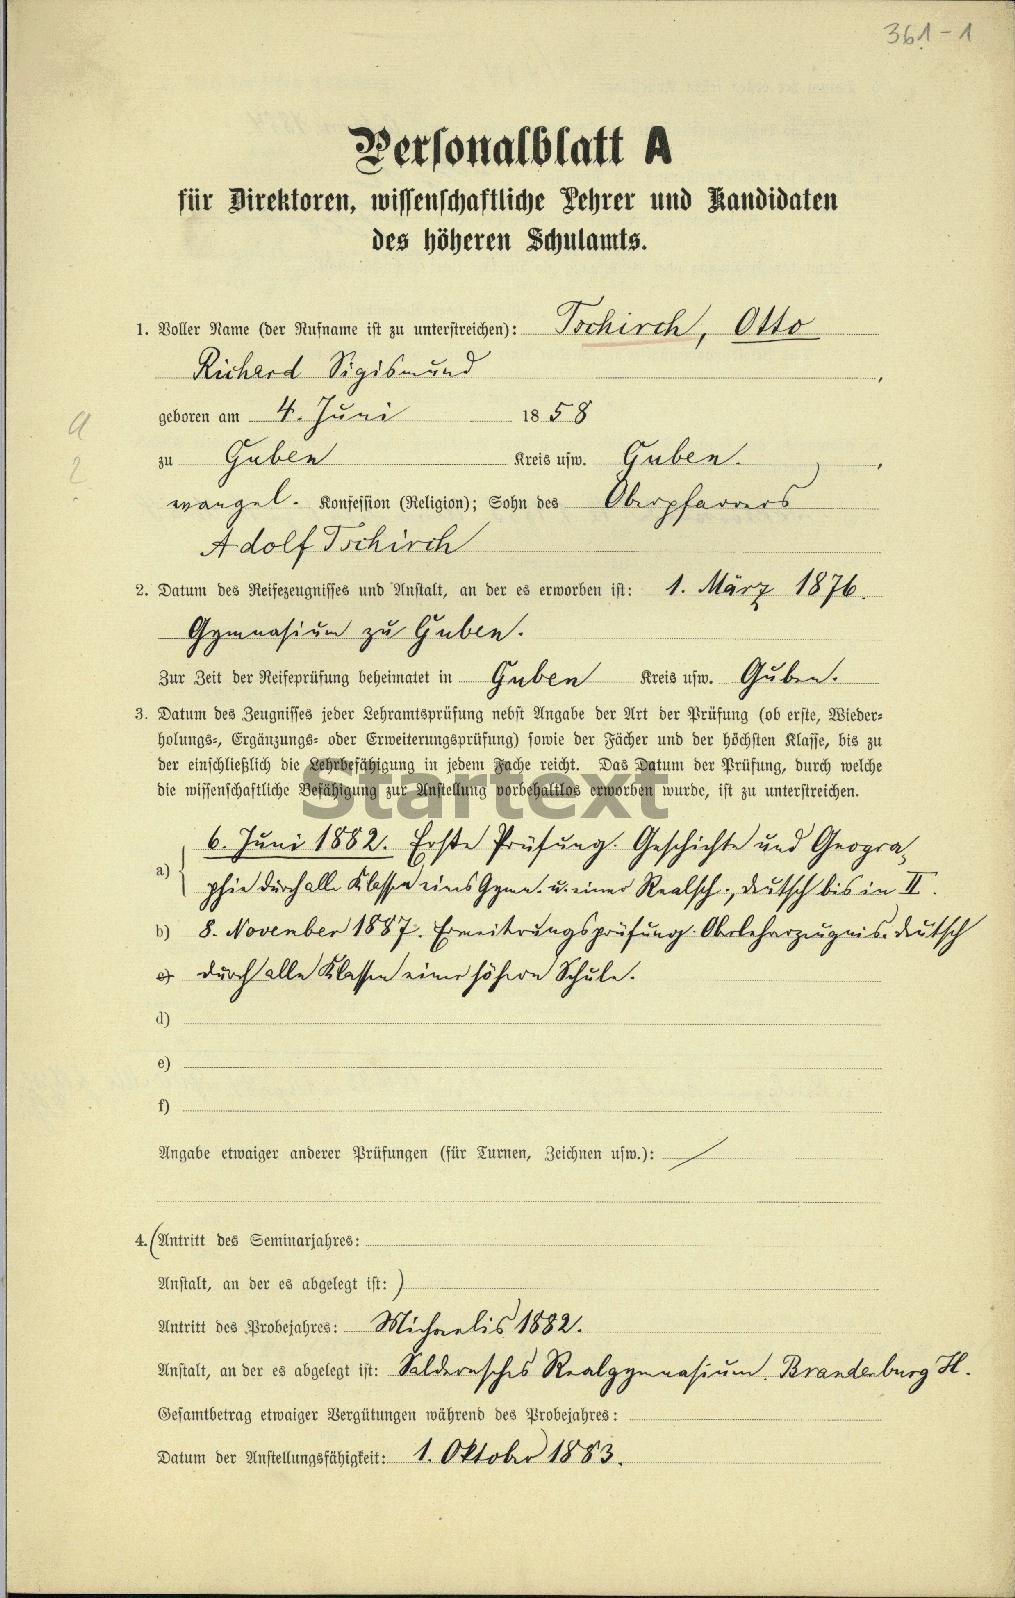 361-1
Personalblatt A
für Direktoren, wissenschaftliche Lehrer und Kandidaten
des höheren Schulamts.
1. Voller Name (der Rufname ist zu unterstreichen): Tschirch, Otto
Richard Sigismund,
geboren am 4. Juni 1858
zu Guben Kreis usw. Guben.,
evangel. Konfession (Religion); Sohn des Oberpfarrers
Adolf Tschirch
2. Datum des Reifezeugnisses und Anstalt, an der es erworben ist: 1. März 1876.
Gymnasium zu Guben.
Zur Zeit der Reifeprüfung beheimatet in Guben Kreis usw. Guben.
3. Datum des Zeugnisses jeder Lehramtsprüfung nebst Angabe der Art der Prüfung (ob erste, Wieder-
holungs-, Ergänzungs- oder Erweiterungsprüfung) sowie der Fächer und der höchsten Klasse, bis zu
der einschließlich die Lehrbefähigung in jedem Fache reicht. Das Datum der Prüfung, durch welche
die wissenschaftliche Befähigung zur Anstellung vorbehaltlos erworben wurde, ist zu unterstreichen.
Startext
a) 6. Juni 1882. Erste Prüfung. Geschichte und Geogra-
phie durch alle Klassen eines Gymn. u. einer Realsch., deutsch bis in II.
b) 8. November 1887. Erweiterungsprüfung. Oberlehrerzeugnis. deutsch
c) durch alle Klassen einer höhern Schule.
d)
e)
f)
Angabe etwaiger anderer Prüfungen (für Turnen, Zeichnen usw.): /
4. (Antritt des Seminarjahres:
Anstalt, an der es abgelegt ist: )
Antritt des Probejahres: Michaelis 1882.
Anstalt, an der es abgelegt ist: Saldernsches Realgymnasium. Brandenburg H.
Gesamtbetrag etwaiger Vergütungen während des Probejahres:
Datum der Anstellungsfähigkeit: 1. Oktober 1883.